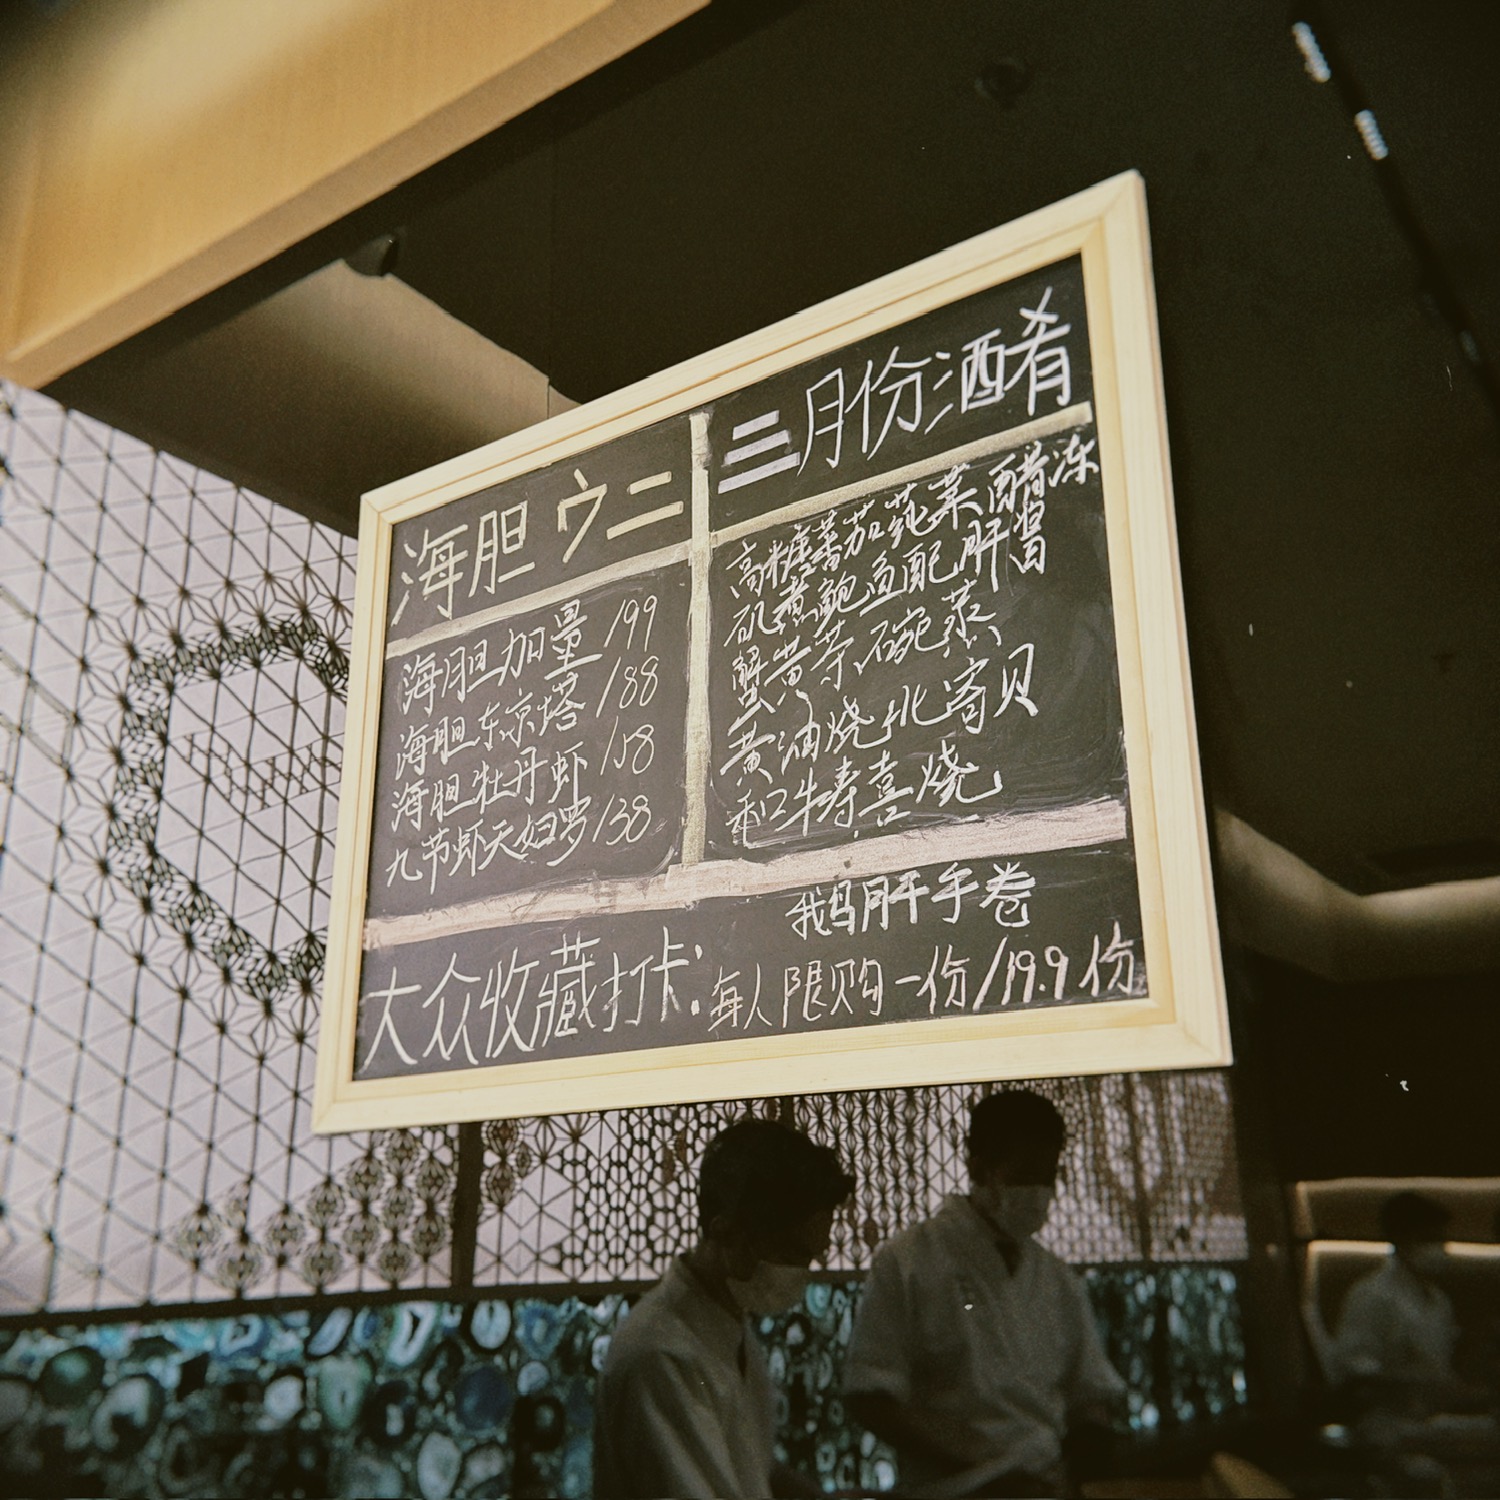 海胆 ウニ
海胆加量 199
海胆东京塔 188
海胆牡丹虾 158
九节虾天妇罗 138
三月份酒肴
高糖蕃茄莼菜醋冻
矶煮鲍鱼配肝酱
蟹黄茶碗蒸
黄油烧北寄贝
和牛寿喜烧
大众收藏打卡:
鹅肝手卷
每人限购一份/19.9份